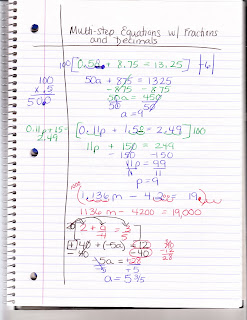 Multi-step Equations w/ Fractions
and Decimals
100 [0.5a + 8.75 = 13.25]
100
x .5
500
50a + 875 = 1325
-875 -875
50a = 450
50 50
a = 9
0.11p + 1.5 =
2.49
[0.11p + 1.50 = 2.49] 100
11p + 150 = 249
-150 -150
11p = 99
11 11
p = 9
1000
(1.136m - 4.200 = 19)
1136m - 4200 = 19,000
40 + (-5a) = 12
-40 -40
-5a = -28
-5 -5
a = 5 3/5